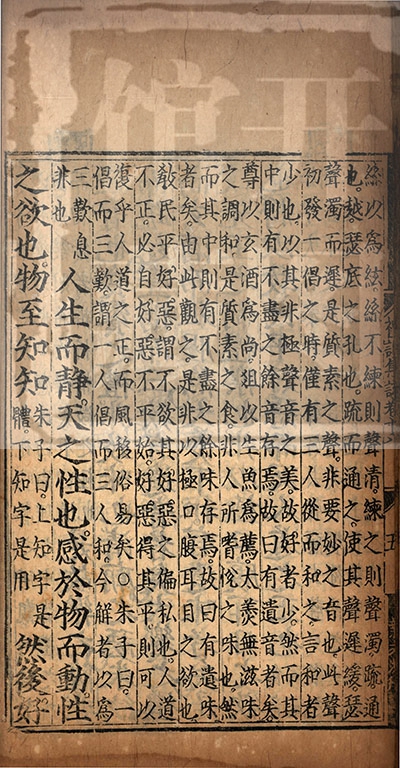 絲以爲絃絲不練則聲清練之則聲濁疏通
也越瑟底之孔也疏而通之使其聲遲緩瑟
聲濁而遲是質素之聲非要妙之音也此聲
初發一倡之時僅有三人從而和之言和者
少也以其非極聲音之美故好者少然而其
中則有不盡之餘音存焉故曰有遺音者矣
尊以玄酒爲尚俎以生魚爲薦大羹無滋味
之調和是質素之食非人所嗜悅之味也然
而其中則有不盡之餘味存焉故曰有遺味
者矣由此觀之是非以極口腹耳目之欲也
敎民平好惡謂不欲其好惡之偏私也人道
不正必自好惡不平始好惡得其平則可以
復乎人道之正而風移俗易矣○朱子曰一
倡而三歎謂一人倡而三人和今解者以爲
三歎息
非也
人生而静天之性也感於物而動性
之欲也物至知知
朱子曰上知字是
體下知字是用
然後好